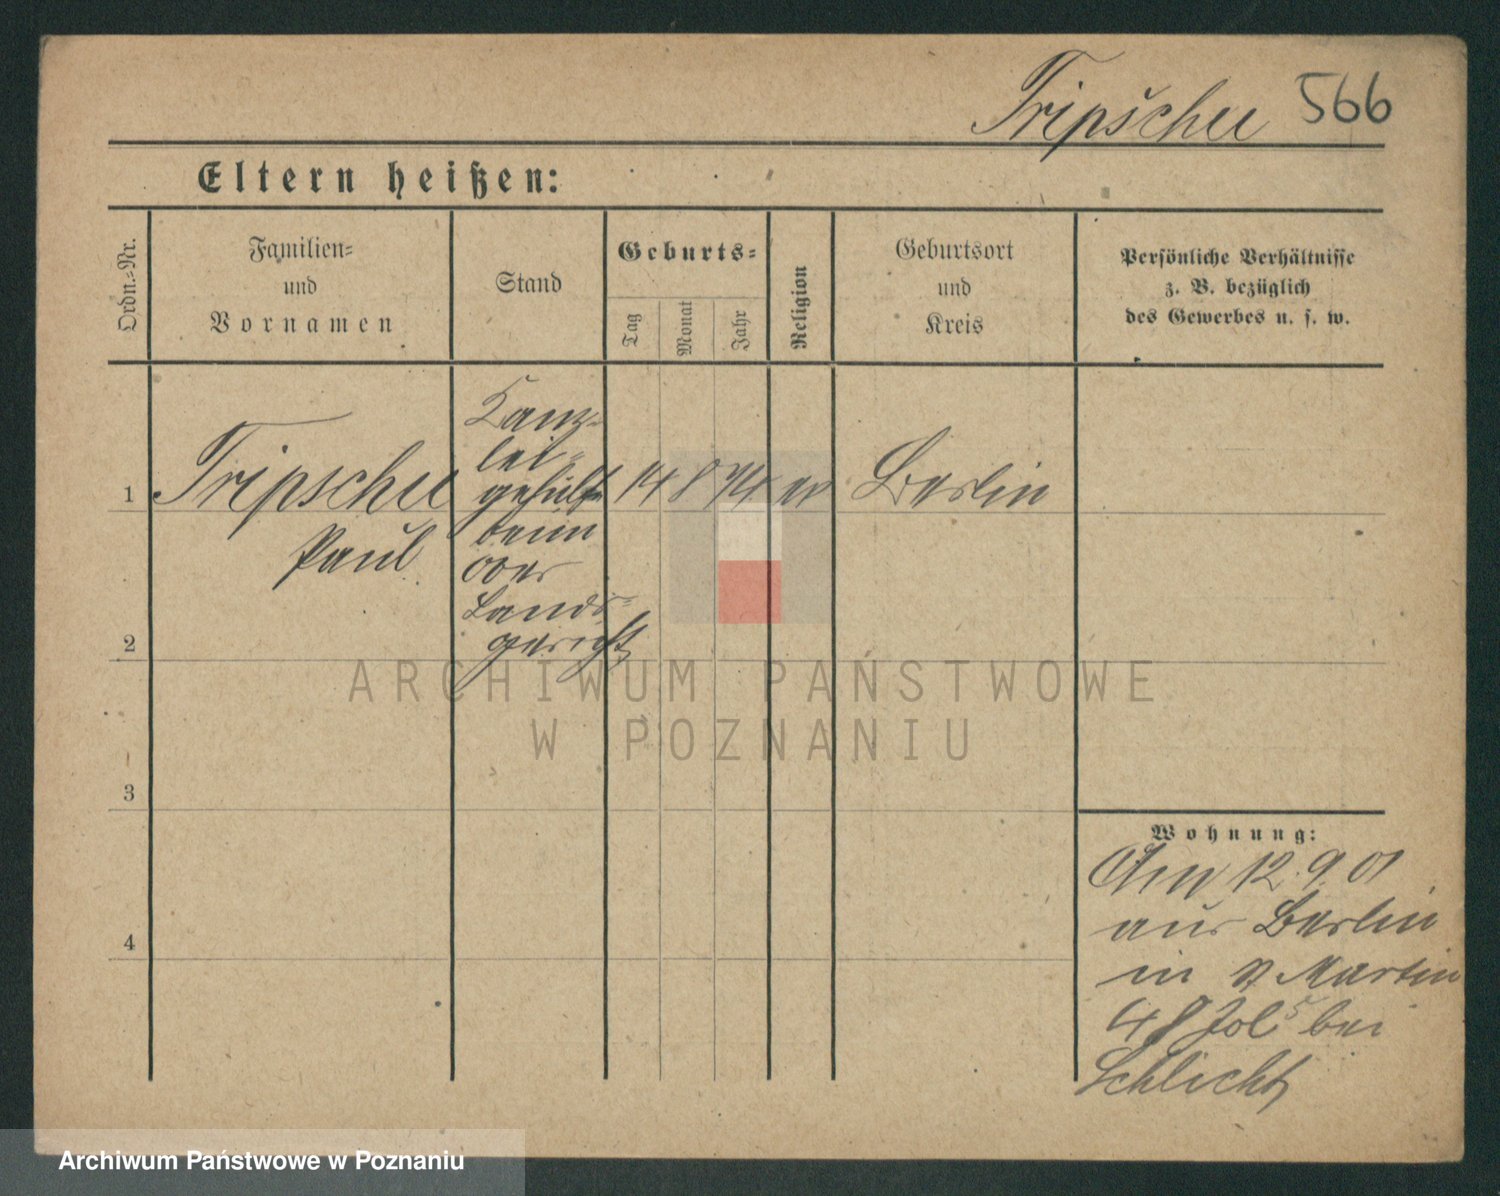 Tripschu 566
Eltern heißen:
Ordn.-Nr.
Familien-
und
Vornamen
Stand
Geburts-
Tag
Monat
Jahr
Religion
Geburtsort
und
Kreis
Persönliche Verhältnisse
z. B. bezüglich
des Gewerbes u. s. w.
Kanz-
lei-
gehülfe
beim
Ober
Lands-
gericht
1 Tripschu 14 8 74 ev Berlin
Paul
2
3
4
ARCHIWUM PAŃSTWOWE
W POZNANIU
Wohnung:
Am 12.9.01
aus Berlin
in St Martin
48 bei
Schlicht
Archiwum Państwowe w Poznaniu